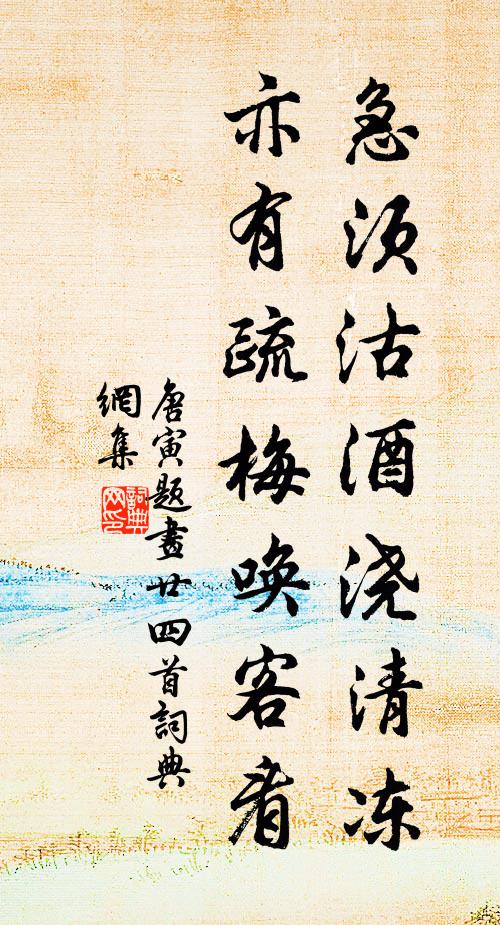 急须沽酒浇清冻
亦有疏梅唤客看
唐寅题畫廿四首詞典
網集
詞典
网印